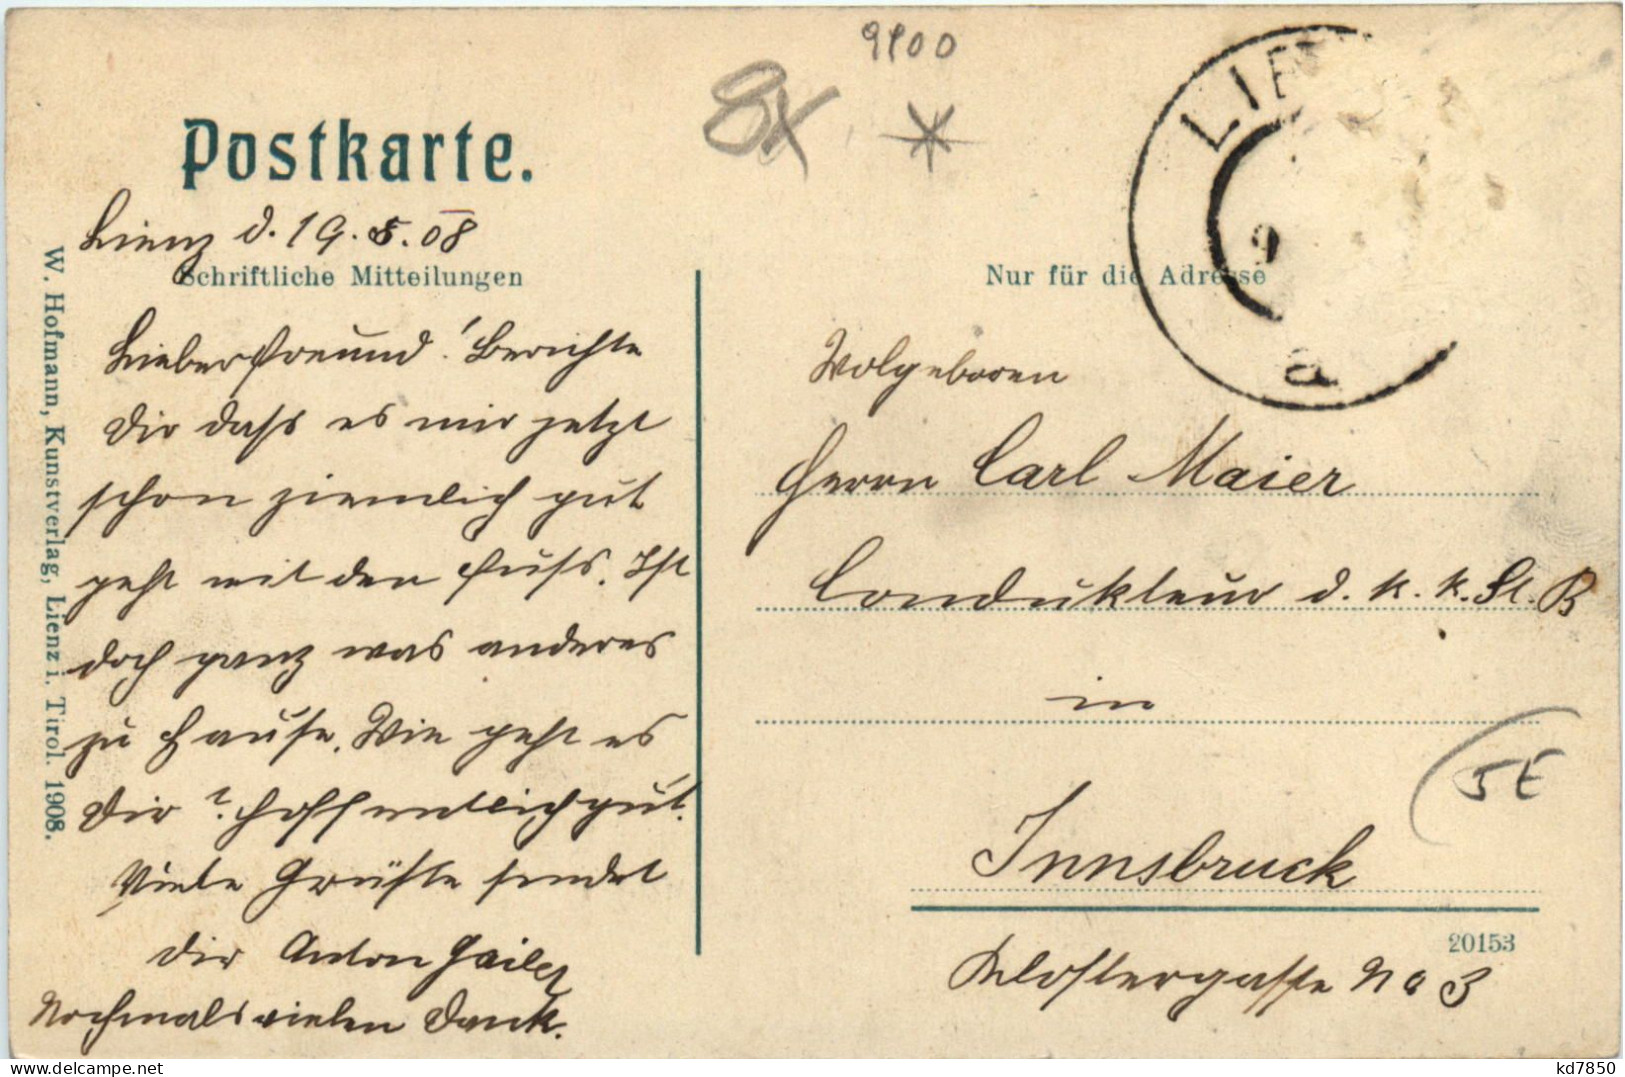 9900
8x
Postkarte.
Lienz d. 19. 5. 08
Schriftliche Mitteilungen
Lieber Freund! Berichte
Dir dass es mir jetzt
schon ziemlich gut
geht mit den Fuss. Ist
doch ganz was anderes
zu Hause. Wie geht es
Dir? Hoffentlich gut.
Viele Grüsse sendet
Dir Anton
Nochmals vielen Dank.
W. Hofmann, Kunstverlag, Lienz i. Tirol. 1908.
LIE
9
Nur für die Adresse
Wolgeboren
Herrn Carl Maier
Condukteur d. k. k. St. B
in
Innsbruck
5E
20153
Klostergasse No 3
kd7850